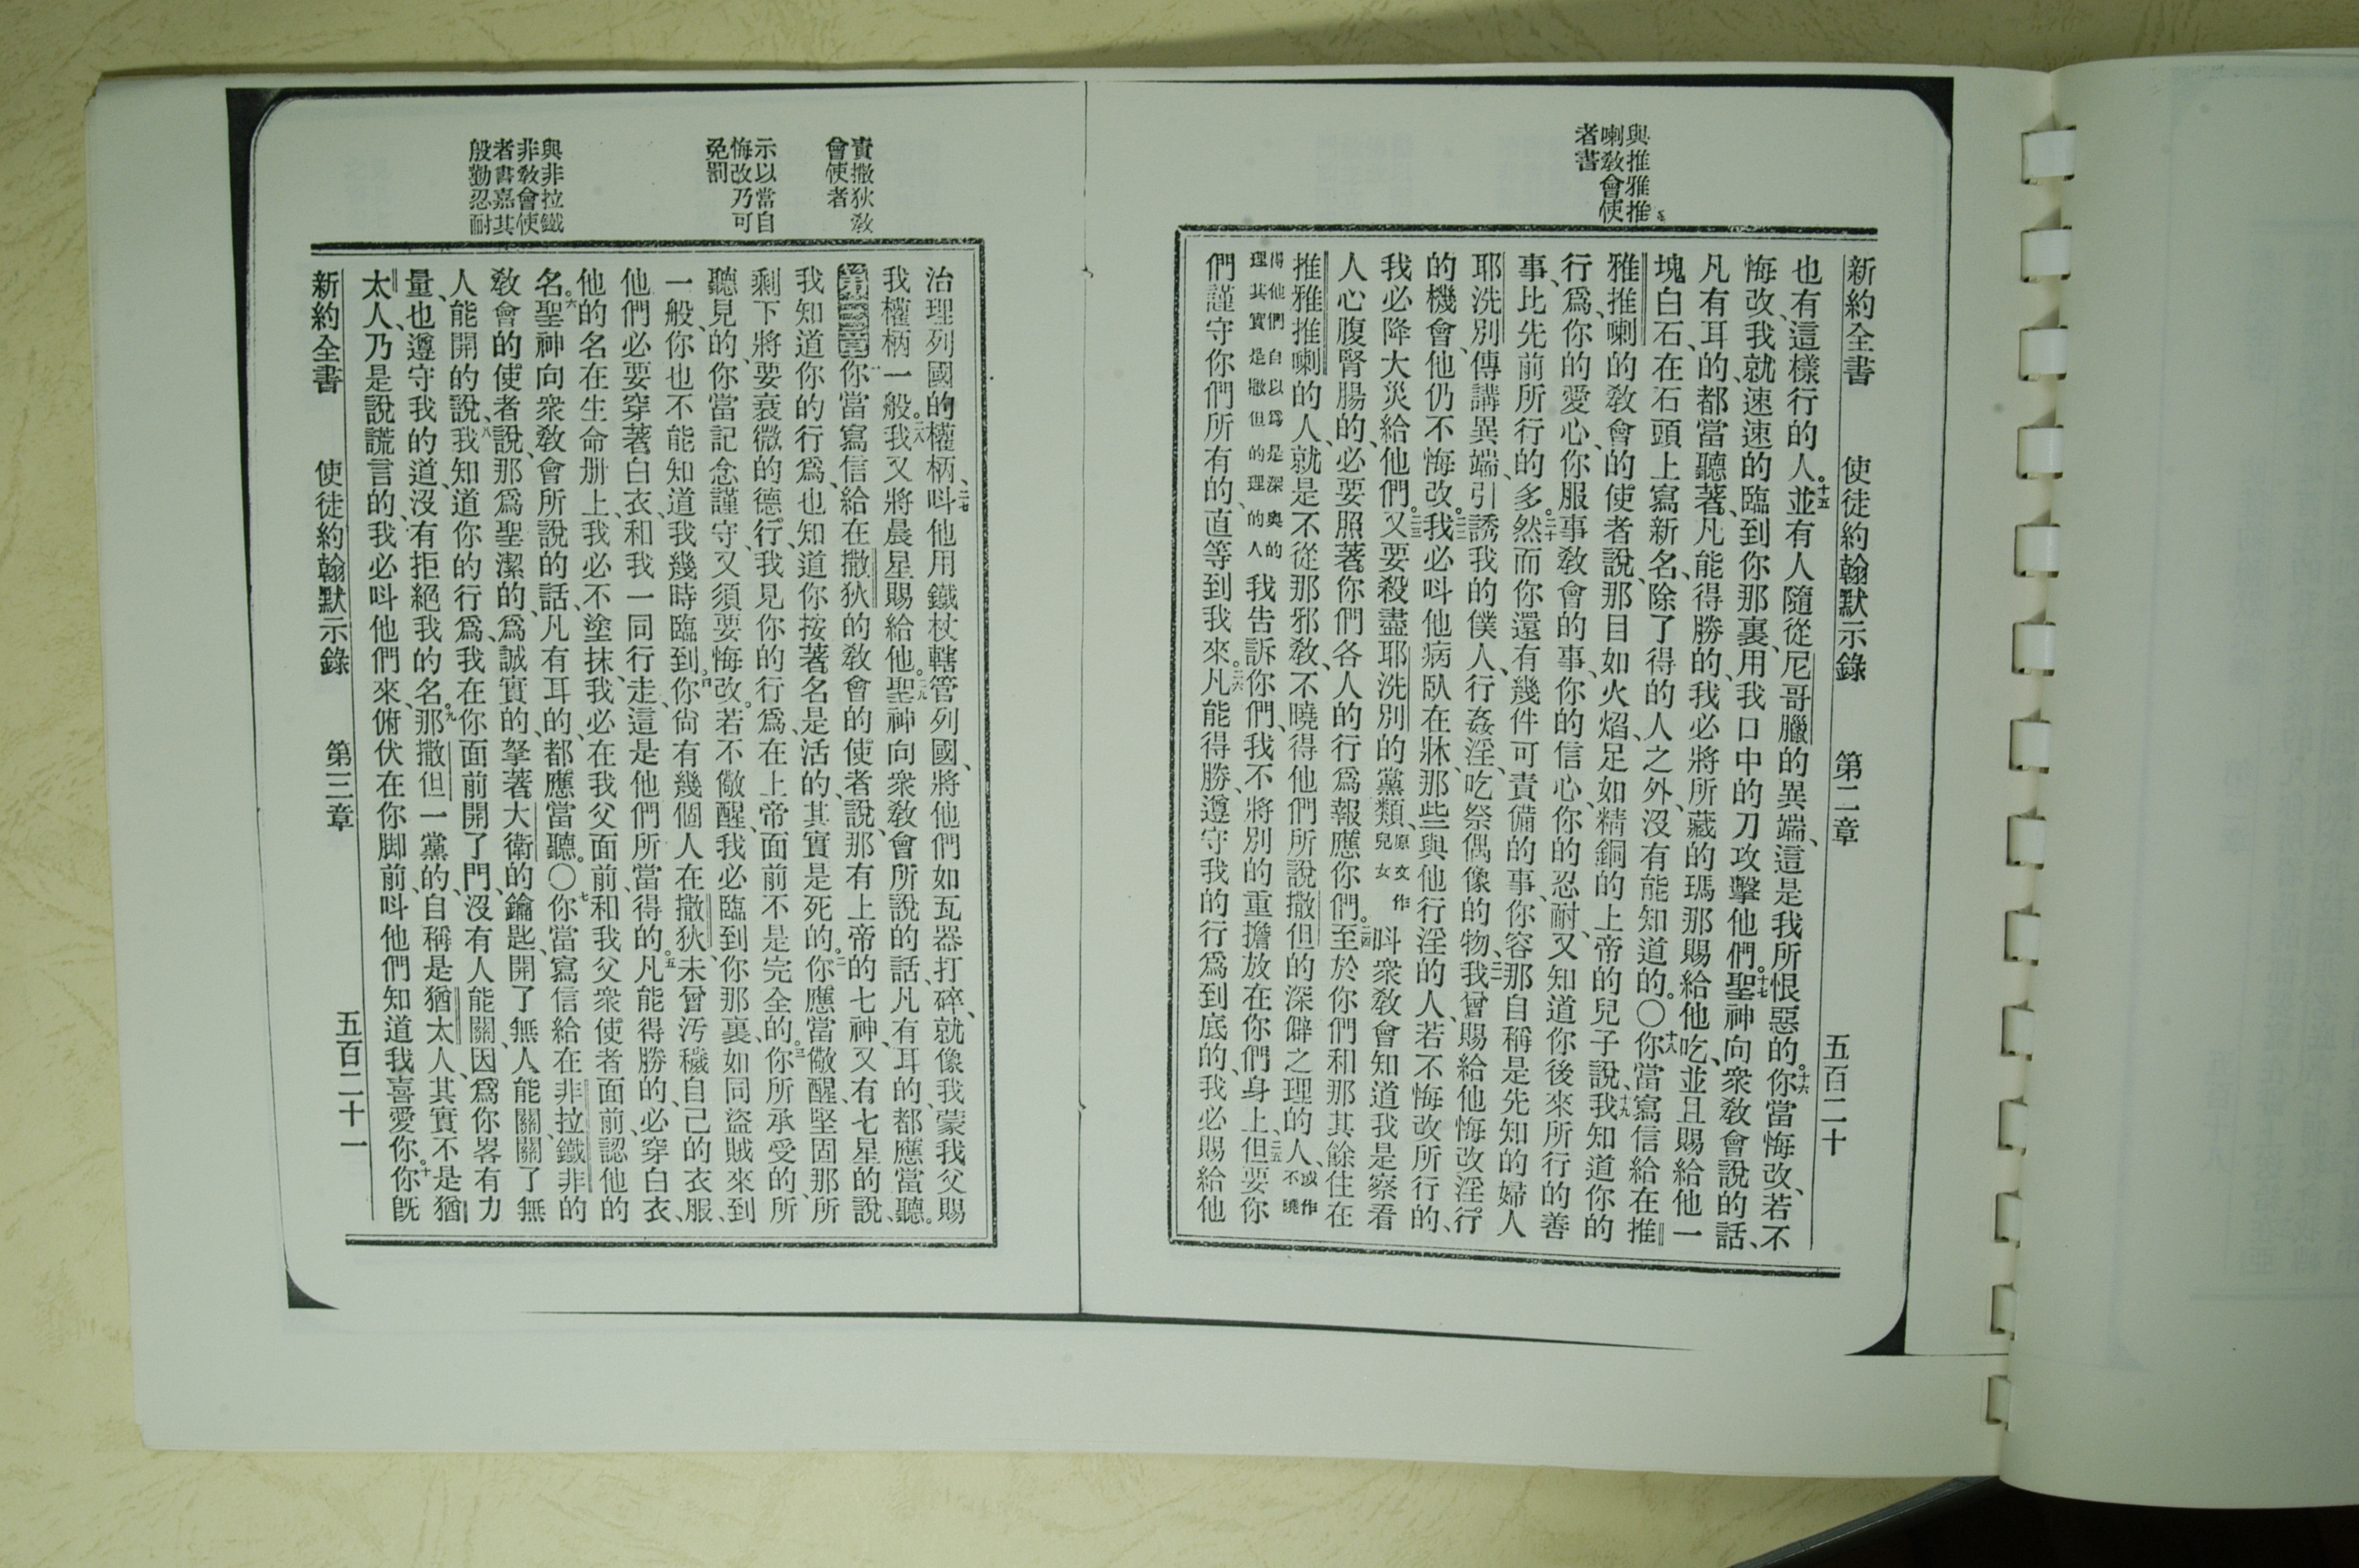 與推雅推
喇教會使
者書
新約全書 使徒約翰默示錄 第二章 五百二十
也有這樣行的人。十五並有人隨從尼哥臘的異端、這是我所恨惡的。十六你當悔改、若不
悔改、我就速速的臨到你那裏、用我口中的刀攻擊他們。十七聖神向衆教會說的話、
凡有耳的、都當聽著、凡能得勝的、我必將所藏的瑪那賜給他吃、並且賜給他一
塊白石、在石頭上寫新名、除了得的人之外、沒有能知道的。〇十八你當寫信給在推
雅推喇的教會的使者說、那目如火焰、足如精銅的上帝的兒子說、十九我知道你的
行爲、你的愛心、你服事教會的事、你的信心、你的忍耐、又知道你後來所行的善
事、比先前所行的多。二十然而你還有幾件可責備的事、你容那自稱是先知的婦人
耶洗別傳講異端、引誘我的僕人、行姦淫、吃祭偶像的物、二一我曾賜給他悔改淫行
的機會、他仍不悔改。二二我必呌他病臥在牀、那些與他行淫的人、若不悔改所行的、
我必降大災給他們。二三又要殺盡耶洗別的黨類、原文作兒女呌衆教會知道我是察看
人心腹腎腸的、必要照著你們各人的行爲報應你們。二四至於你們和那其餘住在
推雅推喇的人、就是不從那邪教、不曉得他們所說撒但的深僻之理的人、或作不曉
得他們自以爲是深奧的理其實是撒但的理的人我告訴你們、我不將別的重擔放在你們身上、二五但要你
們謹守你們所有的、直等到我來。二六凡能得勝、遵守我的行爲到底的、我必賜給他
責撒狄教
會使者
示以當自
悔改乃可
免罰
與非拉鐵
非教會使
者書嘉其
殷勤忍耐
治理列國的權柄、二七呌他用鐵杖轄管列國、將他們如瓦器打碎、就像我蒙我父賜
我權柄一般。二八我又將晨星賜給他。二九聖神向衆教會所說的話、凡有耳的、都應當聽。
第三章你當寫信給在撒狄的教會的使者說、那有上帝的七神、又有七星的說、
我知道你的行爲、也知道你按著名是活的、其實是死的。二你應當儆醒、堅固那所
剩下將要衰微的德行、我見你的行爲、在上帝面前不是完全的。三你所承受的、所
聽見的、你當記念謹守、又須要悔改。若不儆醒、我必臨到你那裏、如同盜賊來到
一般、你也不能知道我幾時臨到。四你尙有幾個人在撒狄、未曾汚穢自己的衣服、
他們必要穿著白衣、和我一同行走、這是他們所當得的。五凡能得勝的、必穿白衣、
他的名在生命册上、我必不塗抹、我必在我父面前、和我父衆使者面前、認他的
名。六聖神向衆教會所說的話、凡有耳的、都應當聽。〇七你當寫信給在非拉鐵非的
教會的使者說、那爲聖潔的、爲誠實的、拏著大衛的鑰匙、開了無人能關、關了無
人能開的說、八我知道你的行爲、我在你面前開了門、沒有人能關、因爲你畧有力
量、也遵守我的道、沒有拒絕我的名。九那撒但一黨的、自稱是猶太人、其實不是猶
太人、乃是說謊言的、我必呌他們來、俯伏在你脚前、呌他們知道我喜愛你。十你旣
新約全書 使徒約翰默示錄 第三章 五百二十一